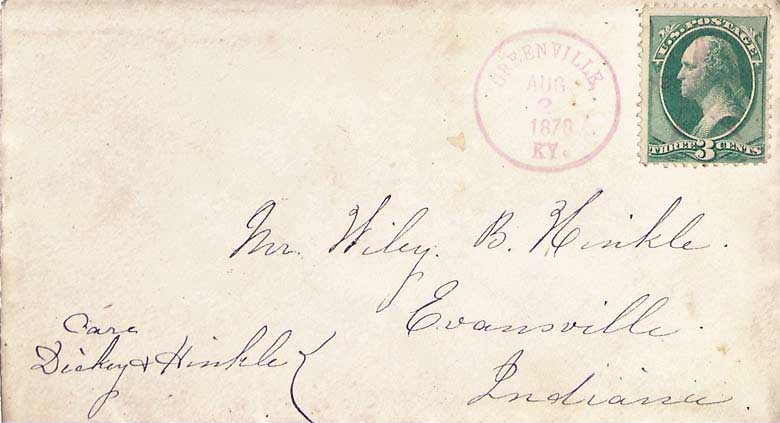 GREENVILLE,
AUG
2
1878
KY.
U.S. POSTAGE
THREE 3 CENTS
Mr. Wiley. B. Hinkle.
Evansville.
Indiana.
Care
Dickey & Hinkle